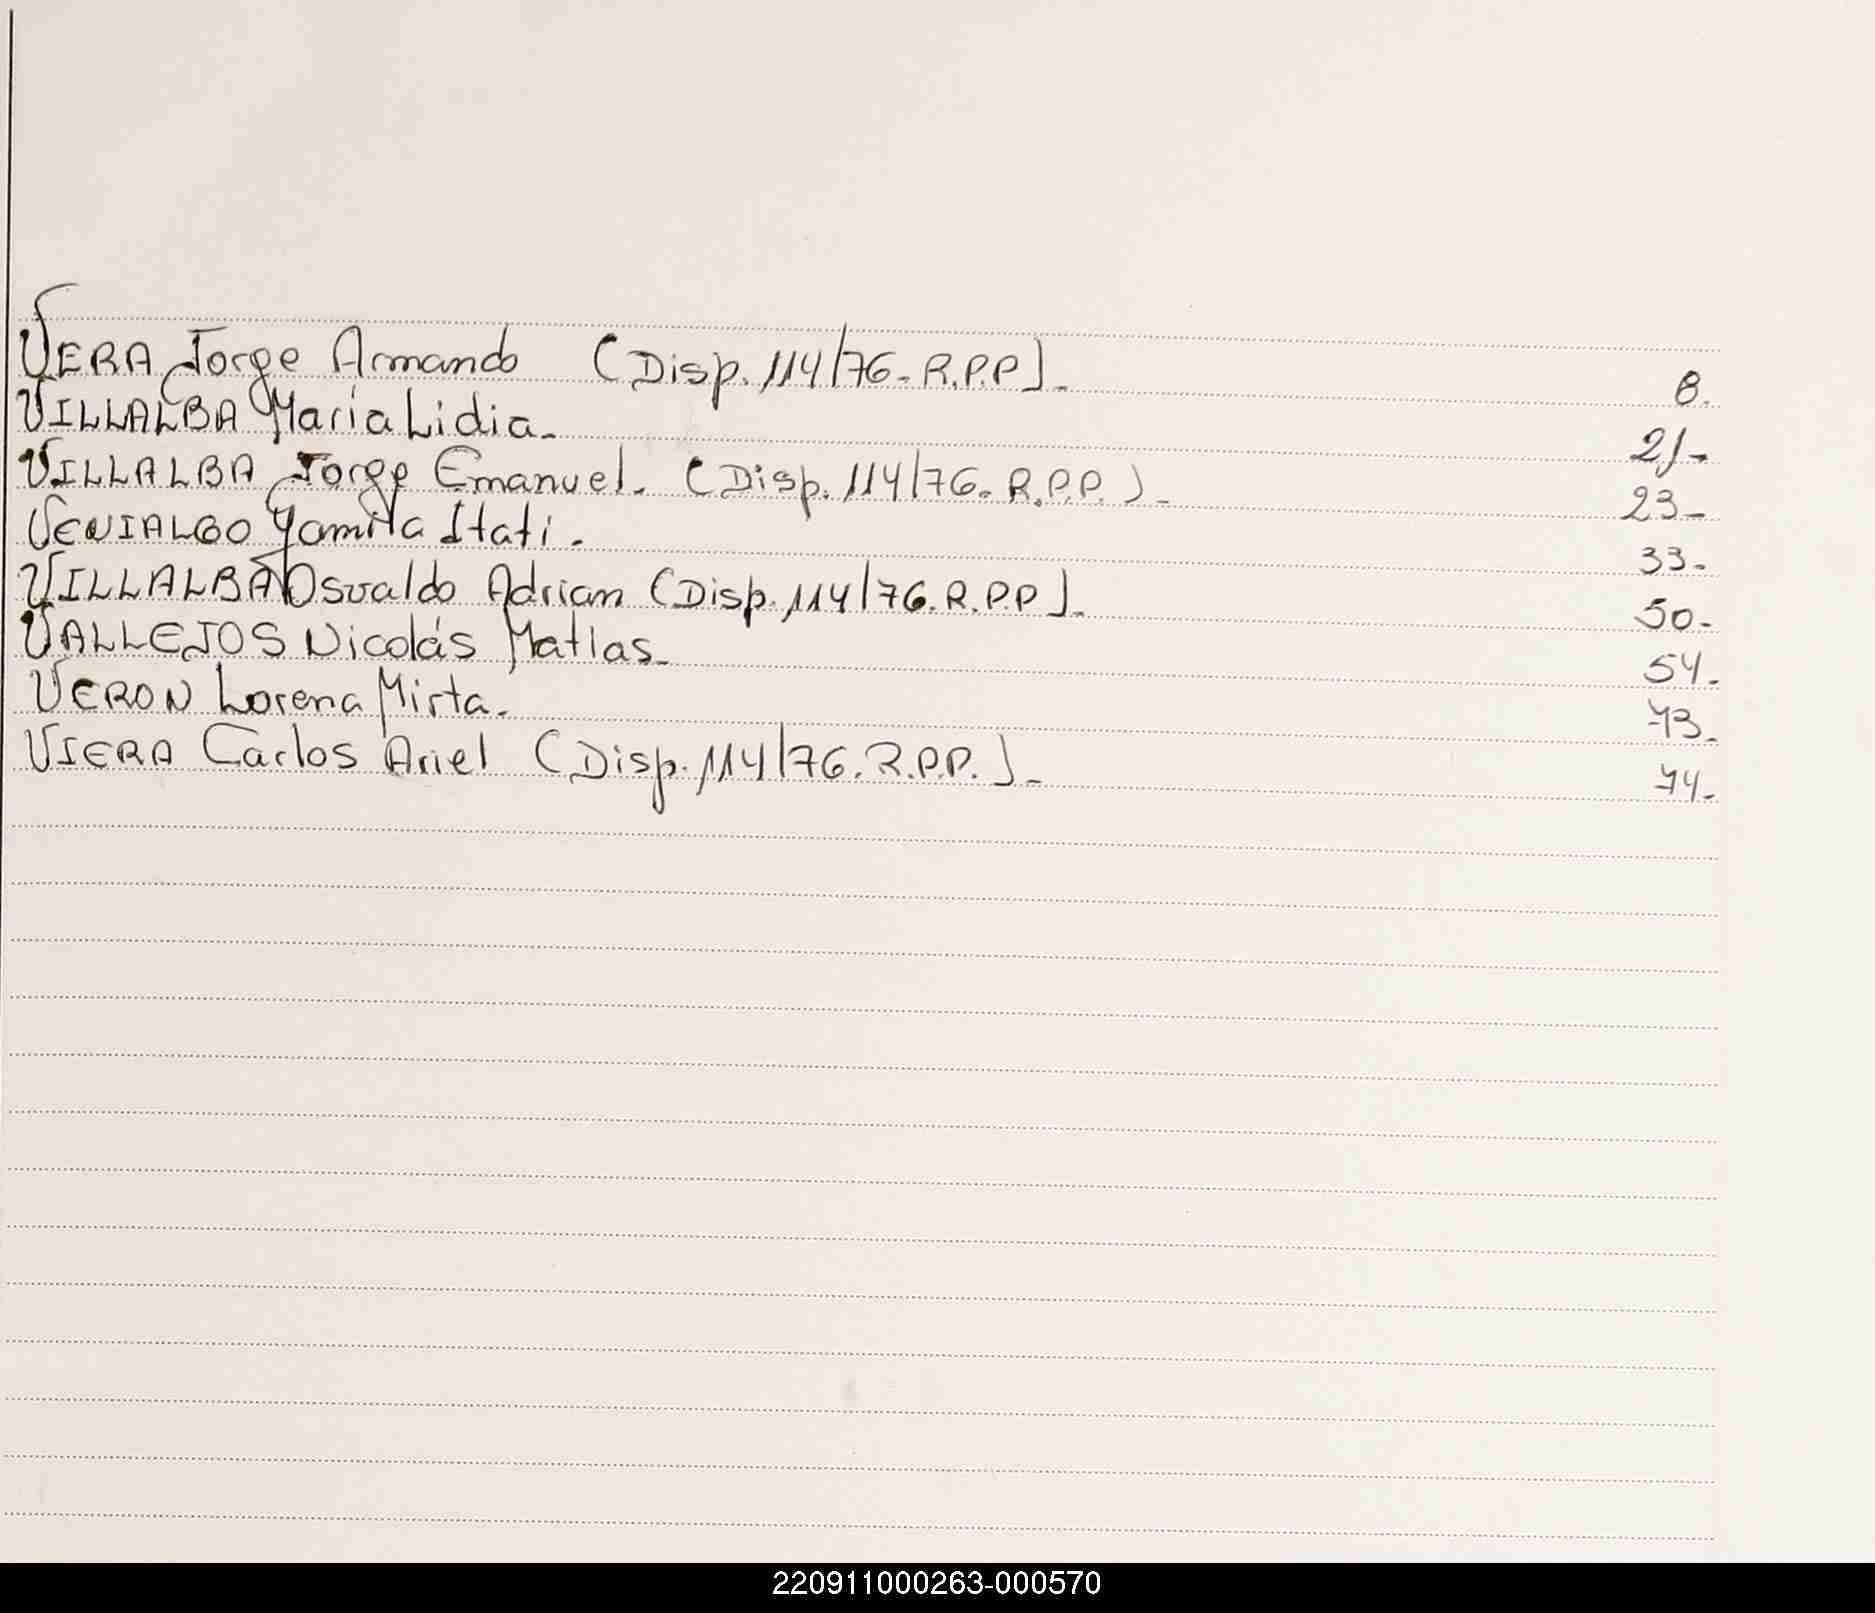 VERA Jorge Armando (Disp. 114/76. R.P.P). 8.
VILLALBA María Lidia. 21-
VILLALBA Jorge Emanuel. (Disp. 114/76. R.P.P.). 23-
VENIALGO Yamila Itati. 33-
VILLALBA Osvaldo Adrian (Disp. 114/76. R.P.P). 50-
VALLEJOS Nicolás Matías. 54.
VERON Lorena Mirta. 73.
VIERA Carlos Ariel (Disp. 114/76. R.P.P.). 74-
220911000263-000570